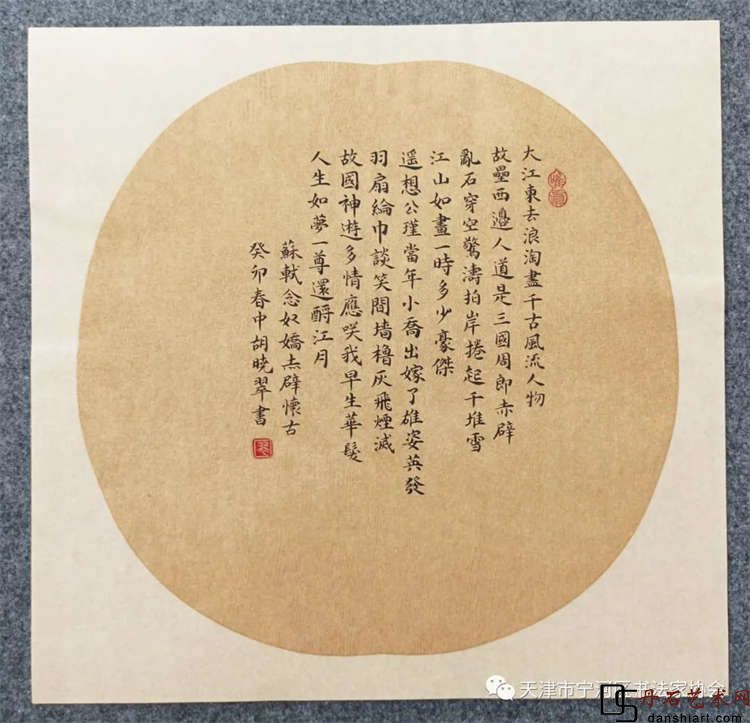 大江東去浪淘盡千古風流人物
故壘西邊人道是三國周郎赤壁
亂石穿空驚濤拍岸捲起千堆雪
江山如畫一時多少豪傑
遥想公瑾當年小喬出嫁了雄姿英發
羽扇綸巾談笑間墙櫓灰飛煙滅
故國神遊多情應咲我早生華髮
人生如夢一尊還酹江月
蘇軾念奴嬌赤壁懷古
癸卯春中胡曉翠書
天津市宁河区书法家协会
DS 丹石艺术网
danshiart.com